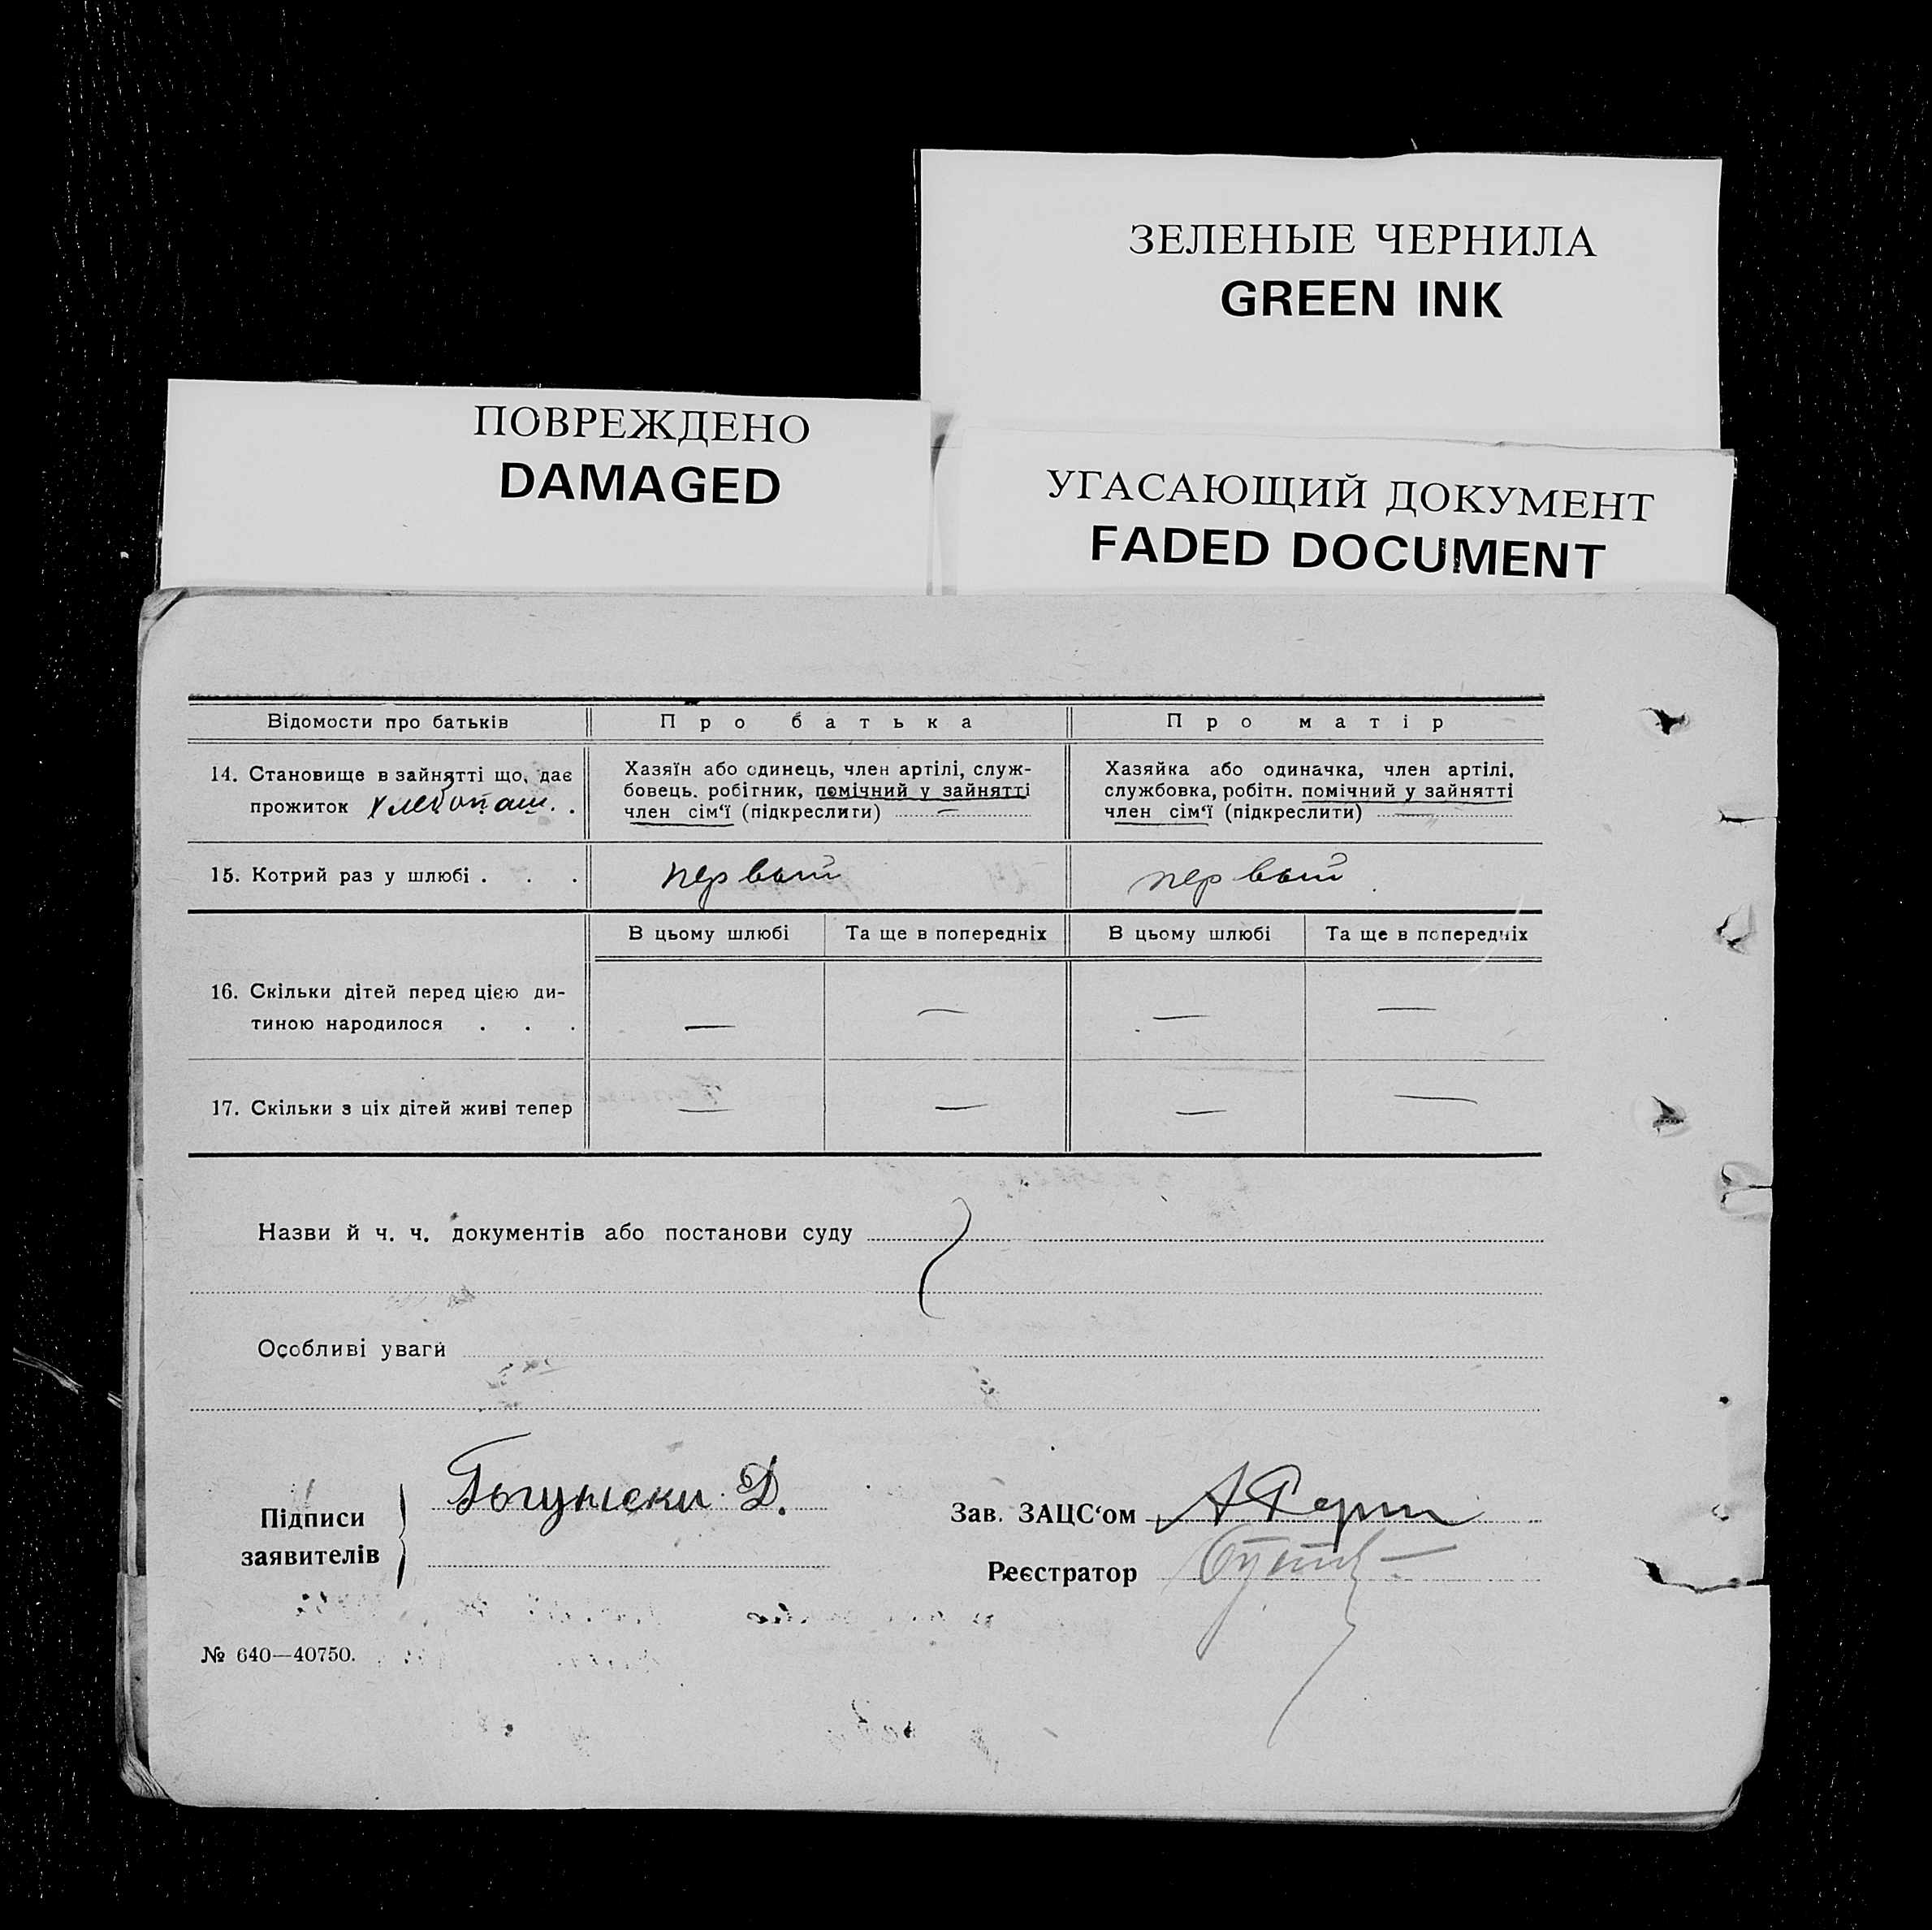 ЗЕЛЕНЫЕ ЧЕРНИЛА
GREEN INK
ПОВРЕЖДЕНО
DAMAGED
УГАСАЮЩИЙ ДОКУМЕНТ
FADED DOCUMENT
Відомости про батьків Про батька Про матір
14. Становище в зайнятті що, дає
прожиток хлебопаш. .
Хазяїн або одинець, член артілі, служ-
бовець. робітник, помічний у зайнятті
член сім‘ї (підкреслити) —
Хазяйка або одиначка, член артілі,
службовка, робітн. помічний у зайнятті
член сім‘ї (підкреслити) —
15. Котрий раз у шлюбі . . . первый первый
В цьому шлюбі Та ще в попередніх В цьому шлюбі Та ще в попередніх
16. Скільки дітей перед цією ди-
тиною народилося . . . — — — —
17. Скільки з ціх дітей живі тепер — — — —
Назви й ч. ч. документів або постанови суду
Особливі уваги
Підписи
заявителів
Д.
Зав. ЗАЦС‘ом
Реєстратор
№ 640—40750.